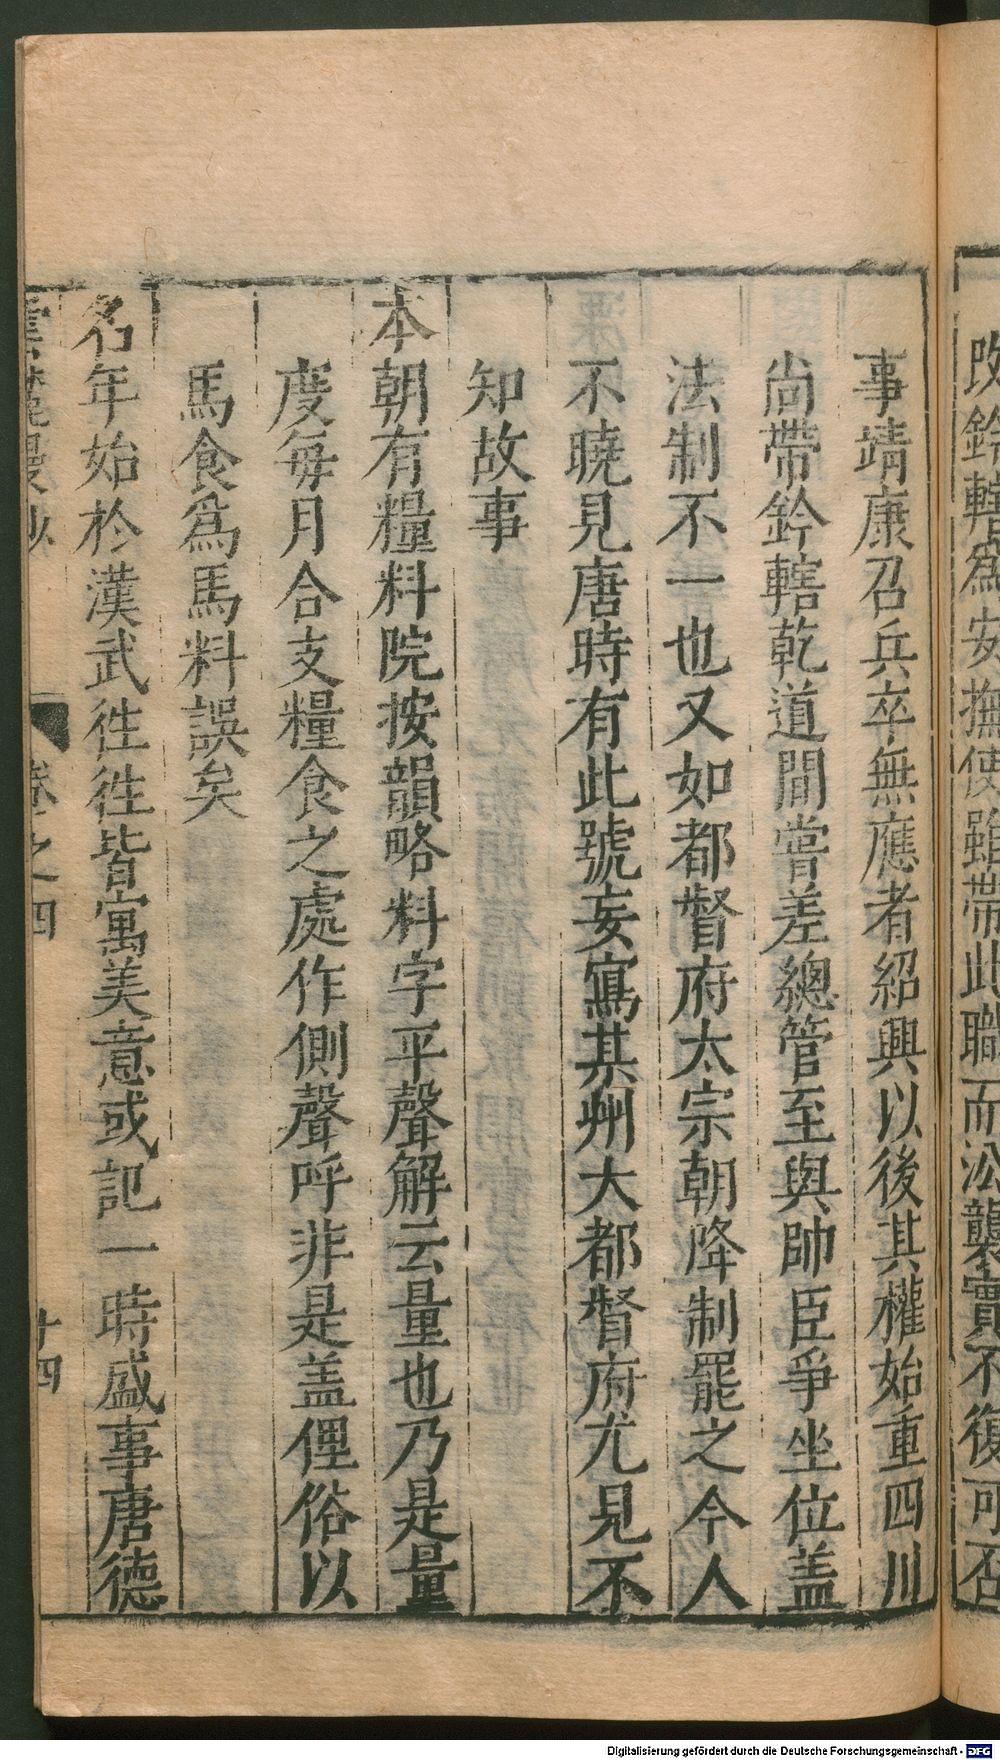 改鈐轄爲安撫使雖帶此職而㳂襲實不復可否
事靖康召兵卒無應者紹興以後其權始重四川
尚帶鈐轄乾道間嘗差總管至與帥臣爭坐位盖
法制不一也又如都督府太宗朝降制罷之今人
不曉見唐時有此號妄寫某州大都督府尤見不
知故事
本朝有糧料院按韻略料字平聲解云量也乃是量
度每月合支糧食之處作側聲呼非是盖俚俗以
馬食爲馬料誤矣
名年始於漢武徃徃皆寓美意或記一時盛事唐德
雲麓漫抄 卷之四 十四
Digitalisierung gefördert durch die Deutsche Forschungsgemeinschaft - DFG